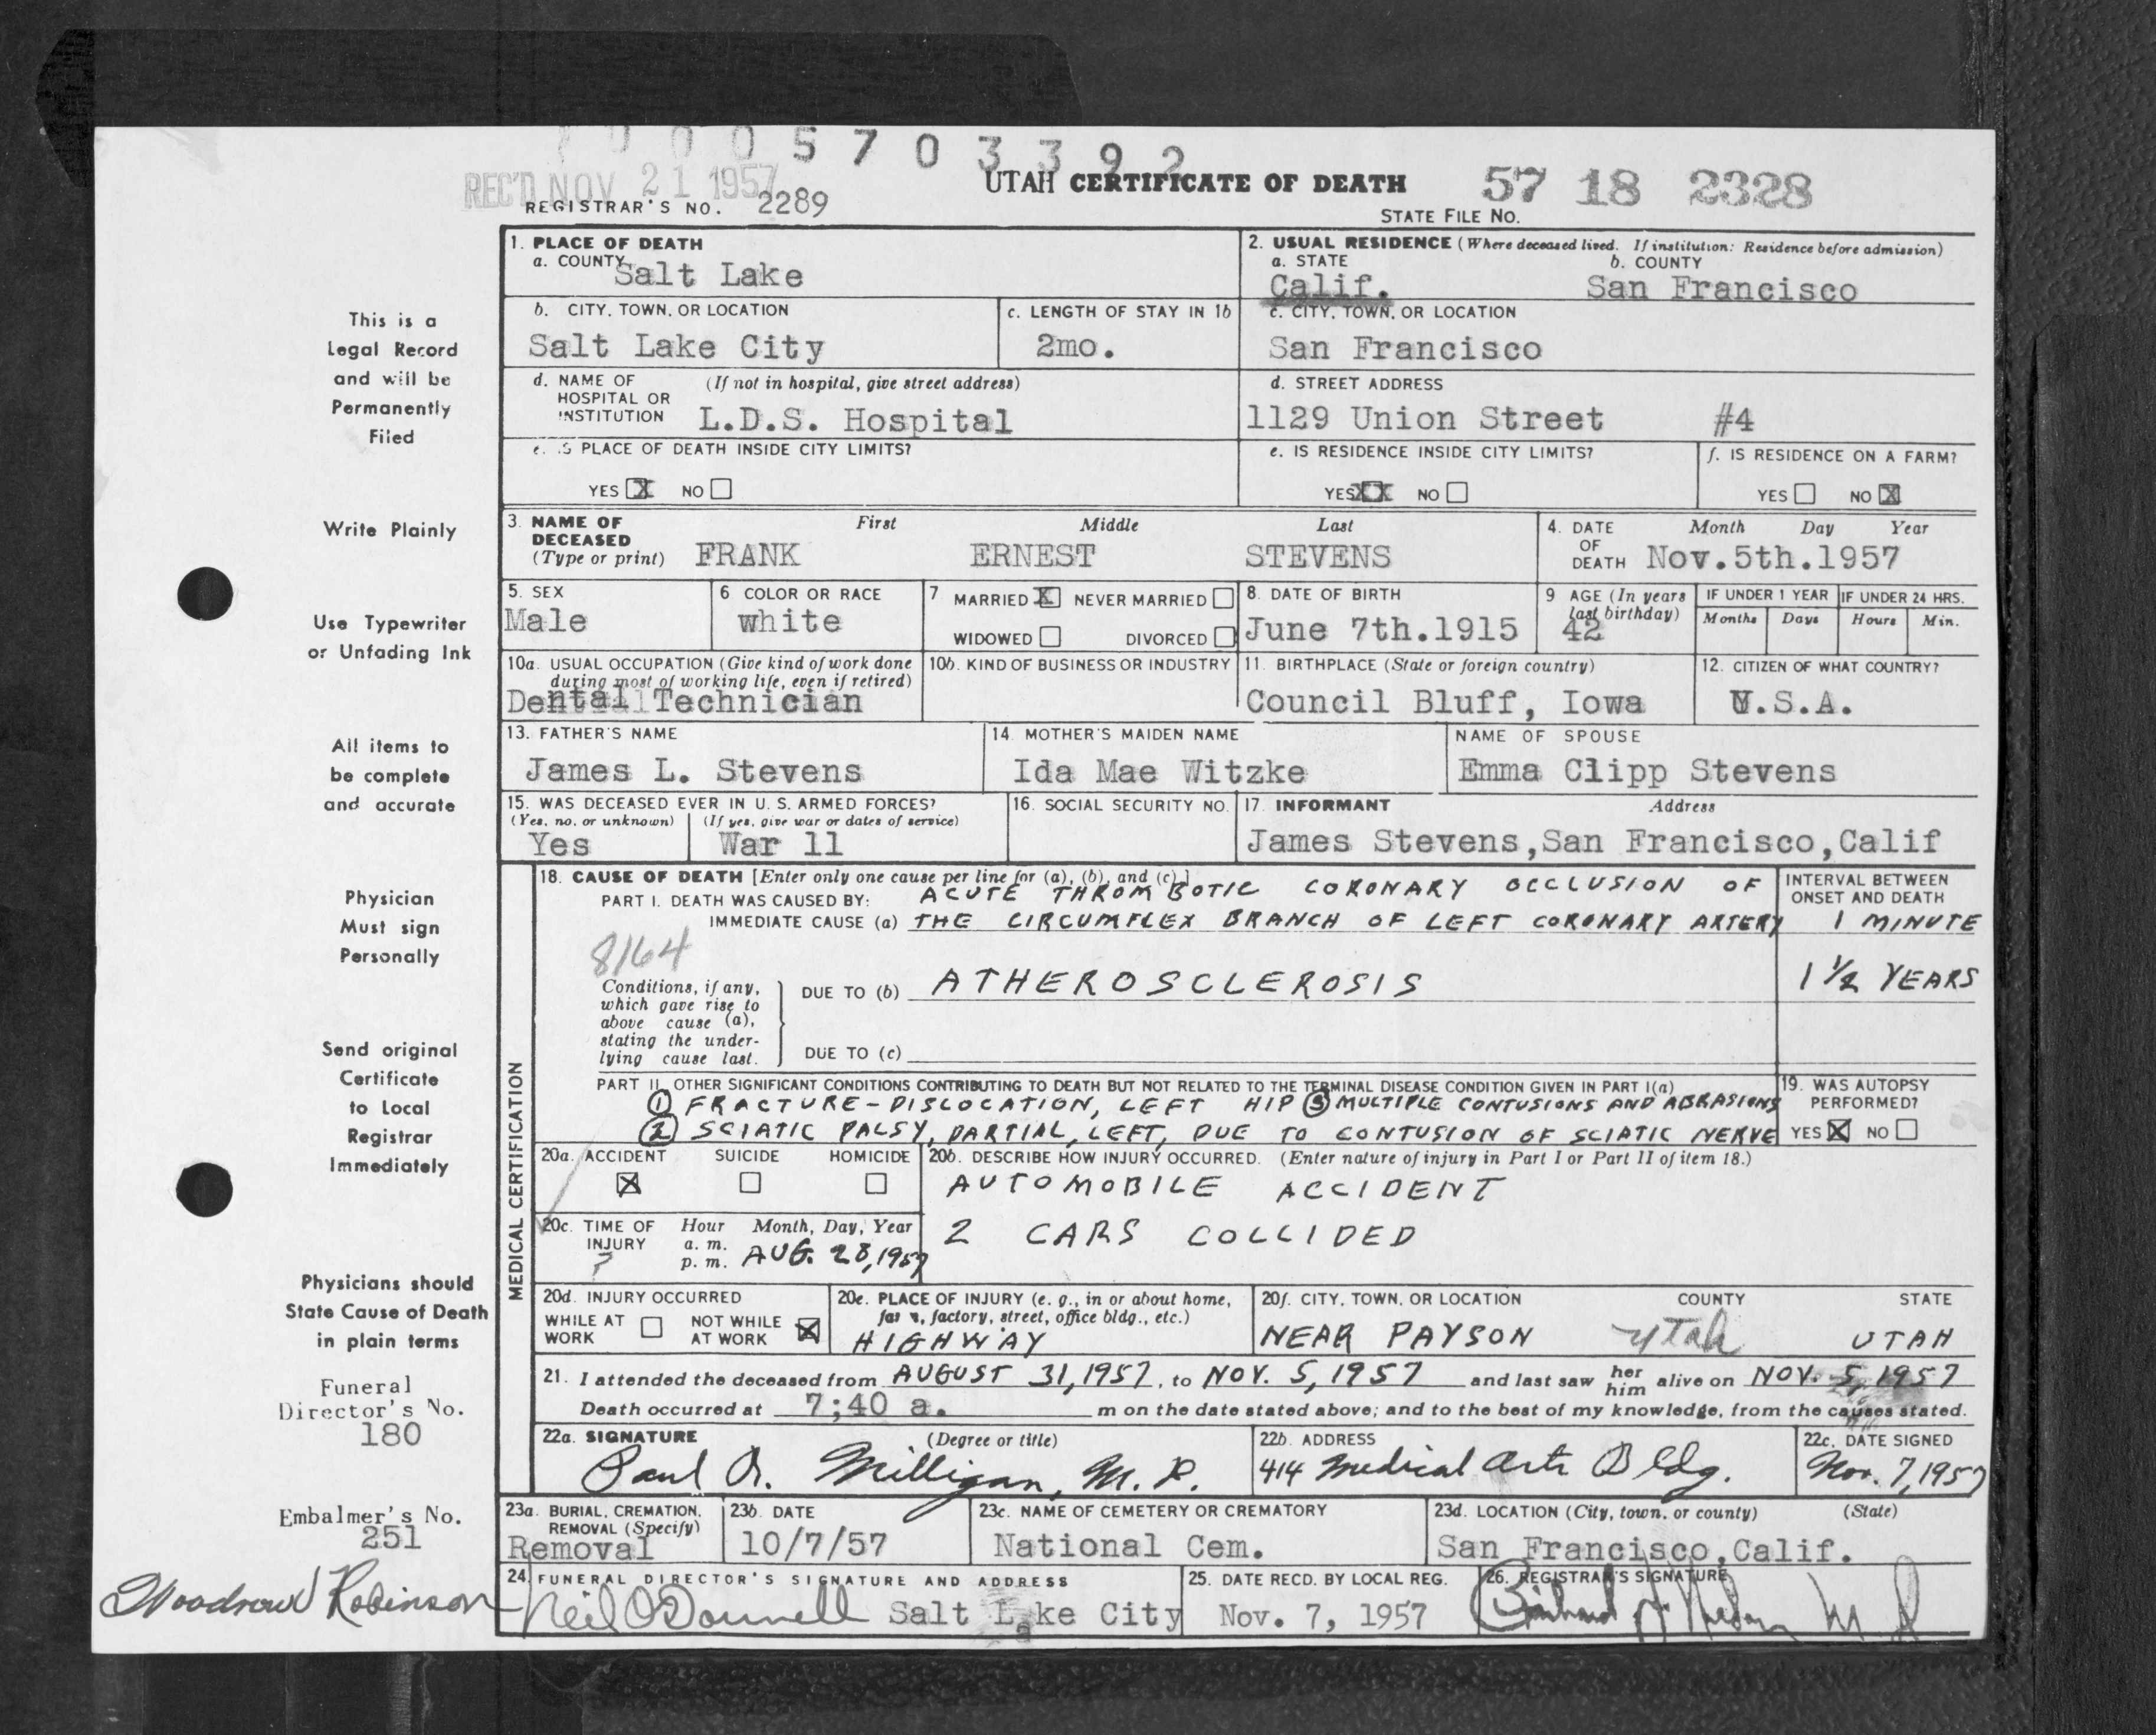 0 0 5 7 0 3 3 9 2
REC'D NOV 21 1957
UTAH CERTIFICATE OF DEATH
57 18 2328
REGISTRAR'S NO. 2289
STATE FILE NO.
1. PLACE OF DEATH
a. COUNTY
Salt Lake
2. USUAL RESIDENCE (Where deceased lived. If institution: Residence before admission)
a. STATE b. COUNTY
Calif. San Francisco
b. CITY, TOWN, OR LOCATION
Salt Lake City
c. LENGTH OF STAY IN 1b
2mo.
c. CITY, TOWN, OR LOCATION
San Francisco
d. NAME OF HOSPITAL OR INSTITUTION (If not in hospital, give street address)
L.D.S. Hospital
d. STREET ADDRESS
1129 Union Street #4
e. IS PLACE OF DEATH INSIDE CITY LIMITS?
YES X NO
e. IS RESIDENCE INSIDE CITY LIMITS?
YES XX NO
f. IS RESIDENCE ON A FARM?
YES NO X
3. NAME OF DECEASED (Type or print) First Middle Last
FRANK ERNEST STEVENS
4. DATE OF DEATH Month Day Year
Nov.5th.1957
5. SEX
Male
6 COLOR OR RACE
white
7 MARRIED X NEVER MARRIED
WIDOWED DIVORCED
8. DATE OF BIRTH
June 7th.1915
9 AGE (In years last birthday)
42
IF UNDER 1 YEAR IF UNDER 24 HRS.
Months Days Hours Min.
10a. USUAL OCCUPATION (Give kind of work done during most of working life, even if retired)
Dental Technician
10b. KIND OF BUSINESS OR INDUSTRY
11. BIRTHPLACE (State or foreign country)
Council Bluff, Iowa
12. CITIZEN OF WHAT COUNTRY?
U.S.A.
13. FATHER'S NAME
James L. Stevens
14. MOTHER'S MAIDEN NAME
Ida Mae Witzke
NAME OF SPOUSE
Emma Clipp Stevens
15. WAS DECEASED EVER IN U. S. ARMED FORCES?
(Yes, no, or unknown) (If yes, give war or dates of service)
Yes War 11
16. SOCIAL SECURITY NO.
17. INFORMANT Address
James Stevens,San Francisco,Calif
MEDICAL CERTIFICATION
18. CAUSE OF DEATH [Enter only one cause per line for (a), (b), and (c).]
PART I. DEATH WAS CAUSED BY: ACUTE THROMBOTIC CORONARY OCCLUSION OF
IMMEDIATE CAUSE (a) THE CIRCUMFLEX BRANCH OF LEFT CORONARY ARTERY
INTERVAL BETWEEN ONSET AND DEATH
1 MINUTE
8164
Conditions, if any, which gave rise to above cause (a), stating the underlying cause last.
DUE TO (b) ATHEROSCLEROSIS
1 1/2 YEARS
DUE TO (c)
PART II. OTHER SIGNIFICANT CONDITIONS CONTRIBUTING TO DEATH BUT NOT RELATED TO THE TERMINAL DISEASE CONDITION GIVEN IN PART I(a)
① FRACTURE-DISLOCATION, LEFT HIP ③ MULTIPLE CONTUSIONS AND ABRASIONS
② SCIATIC PALSY, PARTIAL, LEFT, DUE TO CONTUSION OF SCIATIC NERVE
19. WAS AUTOPSY PERFORMED?
YES X NO
20a. ACCIDENT SUICIDE HOMICIDE
X
20b. DESCRIBE HOW INJURY OCCURRED. (Enter nature of injury in Part I or Part II of item 18.)
AUTOMOBILE ACCIDENT
2 CARS COLLIDED
20c. TIME OF INJURY Hour Month, Day, Year
a. m.
p. m.
? AUG. 28,1957
20d. INJURY OCCURRED
WHILE AT WORK NOT WHILE AT WORK X
20e. PLACE OF INJURY (e. g., in or about home, farm, factory, street, office bldg., etc.)
HIGHWAY
20f. CITY, TOWN, OR LOCATION COUNTY STATE
NEAR PAYSON Utah UTAH
21. I attended the deceased from AUGUST 31,1957, to NOV. 5, 1957 and last saw her him alive on NOV. 5, 1957
Death occurred at 7;40 a. m on the date stated above; and to the best of my knowledge, from the causes stated.
22a. SIGNATURE (Degree or title)
Paul A. Milligan, M.D.
22b. ADDRESS
414 Medical Arts Bldg.
22c. DATE SIGNED
Nov. 7, 1957
23a. BURIAL, CREMATION, REMOVAL (Specify)
Removal
23b. DATE
10/7/57
23c. NAME OF CEMETERY OR CREMATORY
National Cem.
23d. LOCATION (City, town, or county) (State)
San Francisco,Calif.
24. FUNERAL DIRECTOR'S SIGNATURE AND ADDRESS
Neil O'Donnell Salt Lake City
25. DATE RECD. BY LOCAL REG.
Nov. 7, 1957
26. REGISTRAR'S SIGNATURE
This is a
Legal Record
and will be
Permanently
Filed
Write Plainly
Use Typewriter
or Unfading Ink
All items to
be complete
and accurate
Physician
Must sign
Personally
Send original
Certificate
to Local
Registrar
Immediately
Physicians should
State Cause of Death
in plain terms
Funeral
Director's No.
180
Embalmer's No.
251
Woodrow Robinson